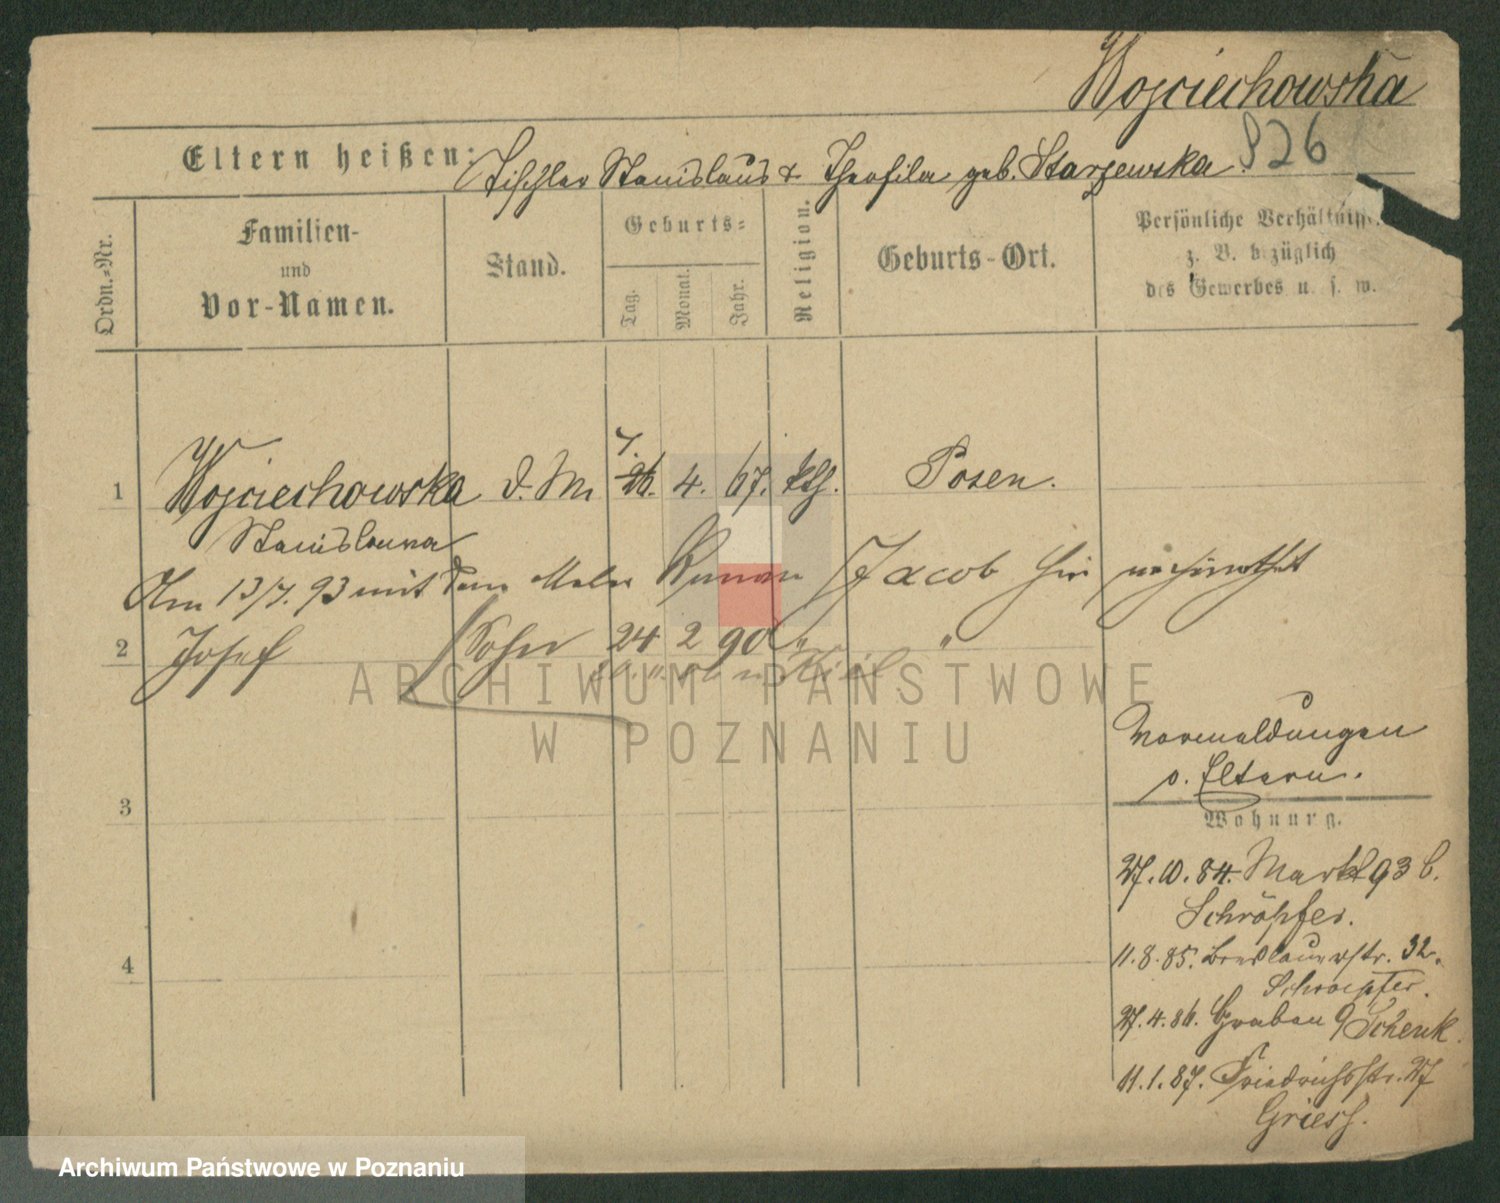 Wojciechowska
826
Eltern heißen: Tischler Stanislaus & Theofila geb. Starzewska
Ordn.-Nr.
Familien-
und
Vor-Namen.
Stand.
Geburts-
Tag.
Monat.
Jahr.
Religion.
Geburts-Ort.
Persönliche Verhältnisse
z. B. bezüglich
des Gewerbes u. s. w.
1 Wojciechowska D. M. 7. 26. 4. 67. kth. Posen.
Stanislawa
Am 13/7. 93 mit dem Maler Jacob hier verheirathet
2 Josef Sohn 24 2 90 " "
3
4
Vormeldungen
s. Eltern.
Wohnung.
27.10.84. Markt 93 b.
Schröpfer.
11.8.85. Breslauerstr. 32.
Schroepfer.
27.4.86. Graben 9 Schenk.
11.1.87. Friedrichsstr. 27
Griess.
ARCHIWUM PAŃSTWOWE
W POZNANIU
Archiwum Państwowe w Poznaniu